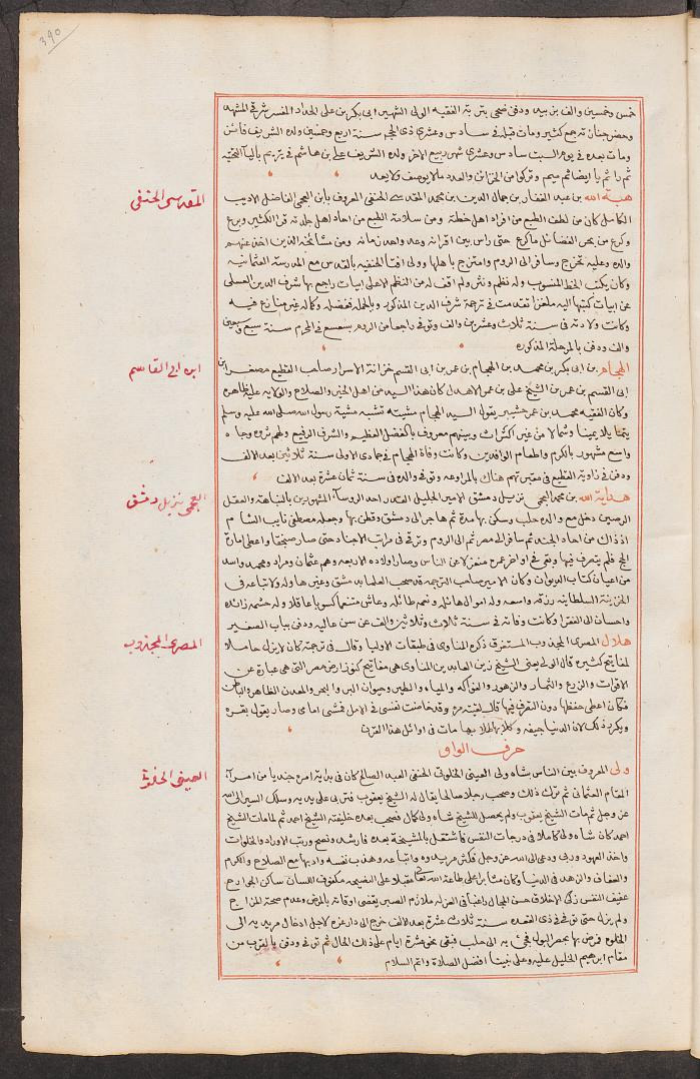 390
خمس وخمسين والف بن بيه ودفن ضحى بتربة الفقيه الولى الشهير ابى بكر بن على الحداد المفسر شرقى المشهد
وحضر جنازته جمع كثير ومات قبله فى سادس وعشرى ذى الحجه سنة اربع وخمسين ولده الشريف فائز
ومات بعده فى يوم السبت سادس وعشرى شهر ربيع الاخر ولده الشريف على بن هاشم فى تريم بالياء التحتيه
ثم راثم يا ايضا ثم ميم وتركوا من الخزائن والعدد ما لا يوصف ولا يعد
المقدسى الحنفى
هبة الله بن عبد الغفار بن جمال الدين بن محمد المقدسى الحنفى المعروف بابن العجمى الفاضل الاديب
الكامل كان من لطف الطبع من افراد اهل خطته ومن سلامة الطبع من احاد اهل جلدته قرا الكثير وبرع
وكرع من بحر الفضائل ما كرع حتى راس بين اقرانه وعد واحد زمانه ومن مشائخه الذين اخذ عنهم
والده وعليه تخرج وسافر الى الروم وامتزج باهلها وولى افتا الحنفيه بالقدس مع المدرسة العثمانيه
وكان يكتب الخط المنسوب وله نظم ونثر ولم اقف له من النظم الا على ابيات راجع بها شرف الدين العسلى
عن ابيات كتبها اليه ملغزا تقدمت فى ترجمة شرف الدين المذكور وبالجمله ففضله وكماله غير منازع فيه
وكانت ولادته فى سنة ثلاث وعشرين والف وتوفى راجعا من الروم بسعسع فى المحرم سنة سبع وسبعين
والف ودفن بالمرحلة المذكوره
ابن ابى القاسم
الهجام بن ابى بكر بن محمد بن الهجام بن عمر بن ابى القسم خزانة الاسرار صاحب القطيع مصغر ابن
ابى القسم بن عمر بن الشيخ على بن عمر الاهدل كان هذا السيد من اهل الخير والصلاح والولايه عليه ظاهره
وكان الفقيه محمد بن عمر حشيبر يقول السيد الهجام مشيته تشبه مشية رسول الله صلى الله عليه وسلم
يتمايلا يمينا وشمالا من غير اكتراث وبيتهم معروف بالفضل العظيم والشرف الرفيع ولهم ثروه وجاه
واسع مشهور بالكرم واطعام الوافدين وكانت وفاة الهجام فى جمادى الاولى سنة ثلاثين بعد الالف
ودفن فى زاوية القطيع فى مقبرتهم هناك بالمراوعه وتوفى والده فى سنة ثمان عشرة بعد الالف
العجمى نزيل دمشق
هداية الله بن محمد العجمى نزيل دمشق الامير الجليل القدر احد الروسآء المشهورين بالنباهة والعقل
الرصين دخل مع والده حلب وسكن بها مدة ثم هاجر الى دمشق وقطن بها وجعله مصطفى نايب الشام
اذ ذاك من احاد الجند ثم سافر الى مصر ثم الى الروم وترقى فى مراتب الاجناد حتى صار سنجقا واعطى امارة
الحج فلم يتصرف فيها وبقى فى اواخر عمره منعزلا عن الناس وصار اولاده الاربعه وهم عثمان ومراد ومحمد واسد
من اعيان كتاب الديوان وكان الامير صاحب الترجمة قد صحب العلما بدمشق وغيرها وله ولاتباعه فى
الخزينة السلطانيه رزقه واسعه وله اموال هائله ونعم طائله وعاش متنعما كسوبا عاقلا وله حشمه زائده
واحسان الى الفقرا وكانت وفاته فى سنة ثلاث وثلاثين والف عن سن عاليه ودفن بباب الصغير
المصرى المجذوب
هلال المصرى المجذوب المستغرق ذكره المناوى فى طبقات الاوليا وقال فى ترجمته كان لا يزل حاملا
لمفاتيح كثيره قال لى الولى يعنى الشيخ زين العابدين المناوى هى مفاتيح كنوز ارض مصر التى هى عبارة عن
الاقوات والزرع والثمار والزهور والفواكه والمياه والطير وحيوان البر والبحر والمعدن الظاهره الباطن
فكان اعطى حفظها دون التصرف فيها قال لقيته مره وقد خامت نفسى فى الامل فمشى امامى وصار يقول بقره
ويكرر ذلك لان الدنيا جيفه وكلابها طلابها مات فى اوائل هذا القرن
حرف الواو
العينى الخلوتى
ولى المعروف بين الناس بشاه ولى العينى الخلوتى الحنفى العبد الصالح كان فى بداية امره جنديا من امرآء
المقام العثمانى ثم ترك ذلك وصحب رجلا صالحا يقال له الشيخ يعقوب فتربى على يديه وسلك السير الى الله
عز وجل ثم مات الشيخ يعقوب ولم يحصل للشيخ شاه ولى كمال فصحب بعده خليفته الشيخ احمد ثم لما مات الشيخ
احمد كان شاه ولى كاملا فى درجات النفس فاشتغل بالمشيخة بعده فارشد ونصح ورتب الاوراد والخلوات
واخذ العهود وربى ودعى الى الله عز وجل فكثر مريدوه واتباعه وهذب نفسه وادبها مع الصلاح والكرم
والعفاف والزهد فى الدنيا وكان مثابرا على طاعة الله تعالى مقبلا على النصيحه مكفوف اللسان ساكن الجوارح
عفيف النفس زكى الاخلاق حسن المجال راغبا فى العزله ملازم الصبر يقضى اوقاته بالمرض وعدم صحة المزاج
ولم يزل حتى توفى فى ذى القعده سنة ثلاث عشرة بعد الالف خرج الى دارعزه لاجل ادخال مريديه الى
الخلوه فمرض بها بحصر البول فجئ به الى حلب فبقى نحو عشرة ايام على ذلك الحال ثم توفى ودفن بالقرب من
مقام ابرهيم الخليل عليه وعلى نبينا افضل الصلاة واتم السلام